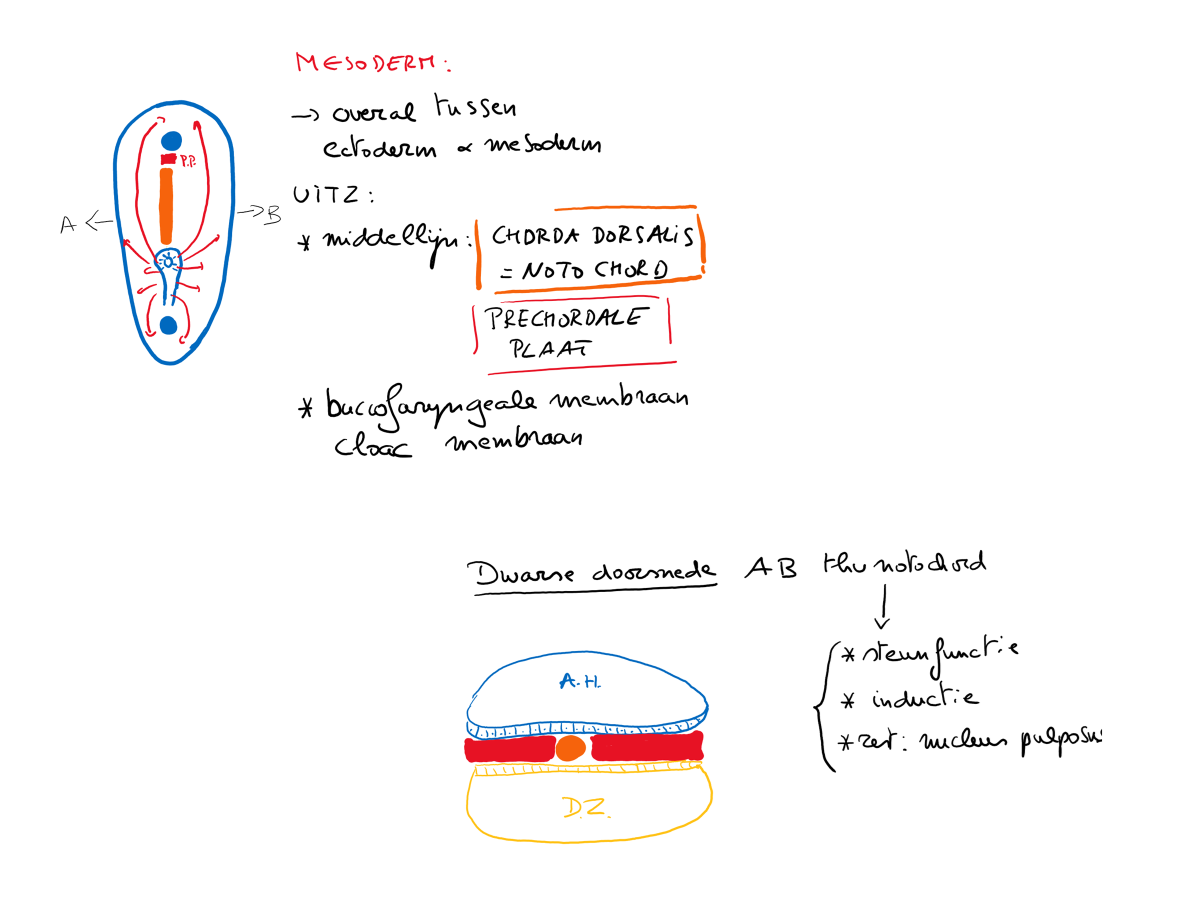 MESODERM:
→ overal tussen
ectoderm & mesoderm
P.P.
UITZ:
A ← → B
* middellijn: CHORDA DORSALIS
= NOTOCHORD
PRECHORDALE
PLAAT
* buccofaryngeale membraan
cloac membraan
Dwarse doorsnede AB thv notochord
* steunfunctie
A.H.
* inductie
* rest: nucleus pulposus
D.Z.